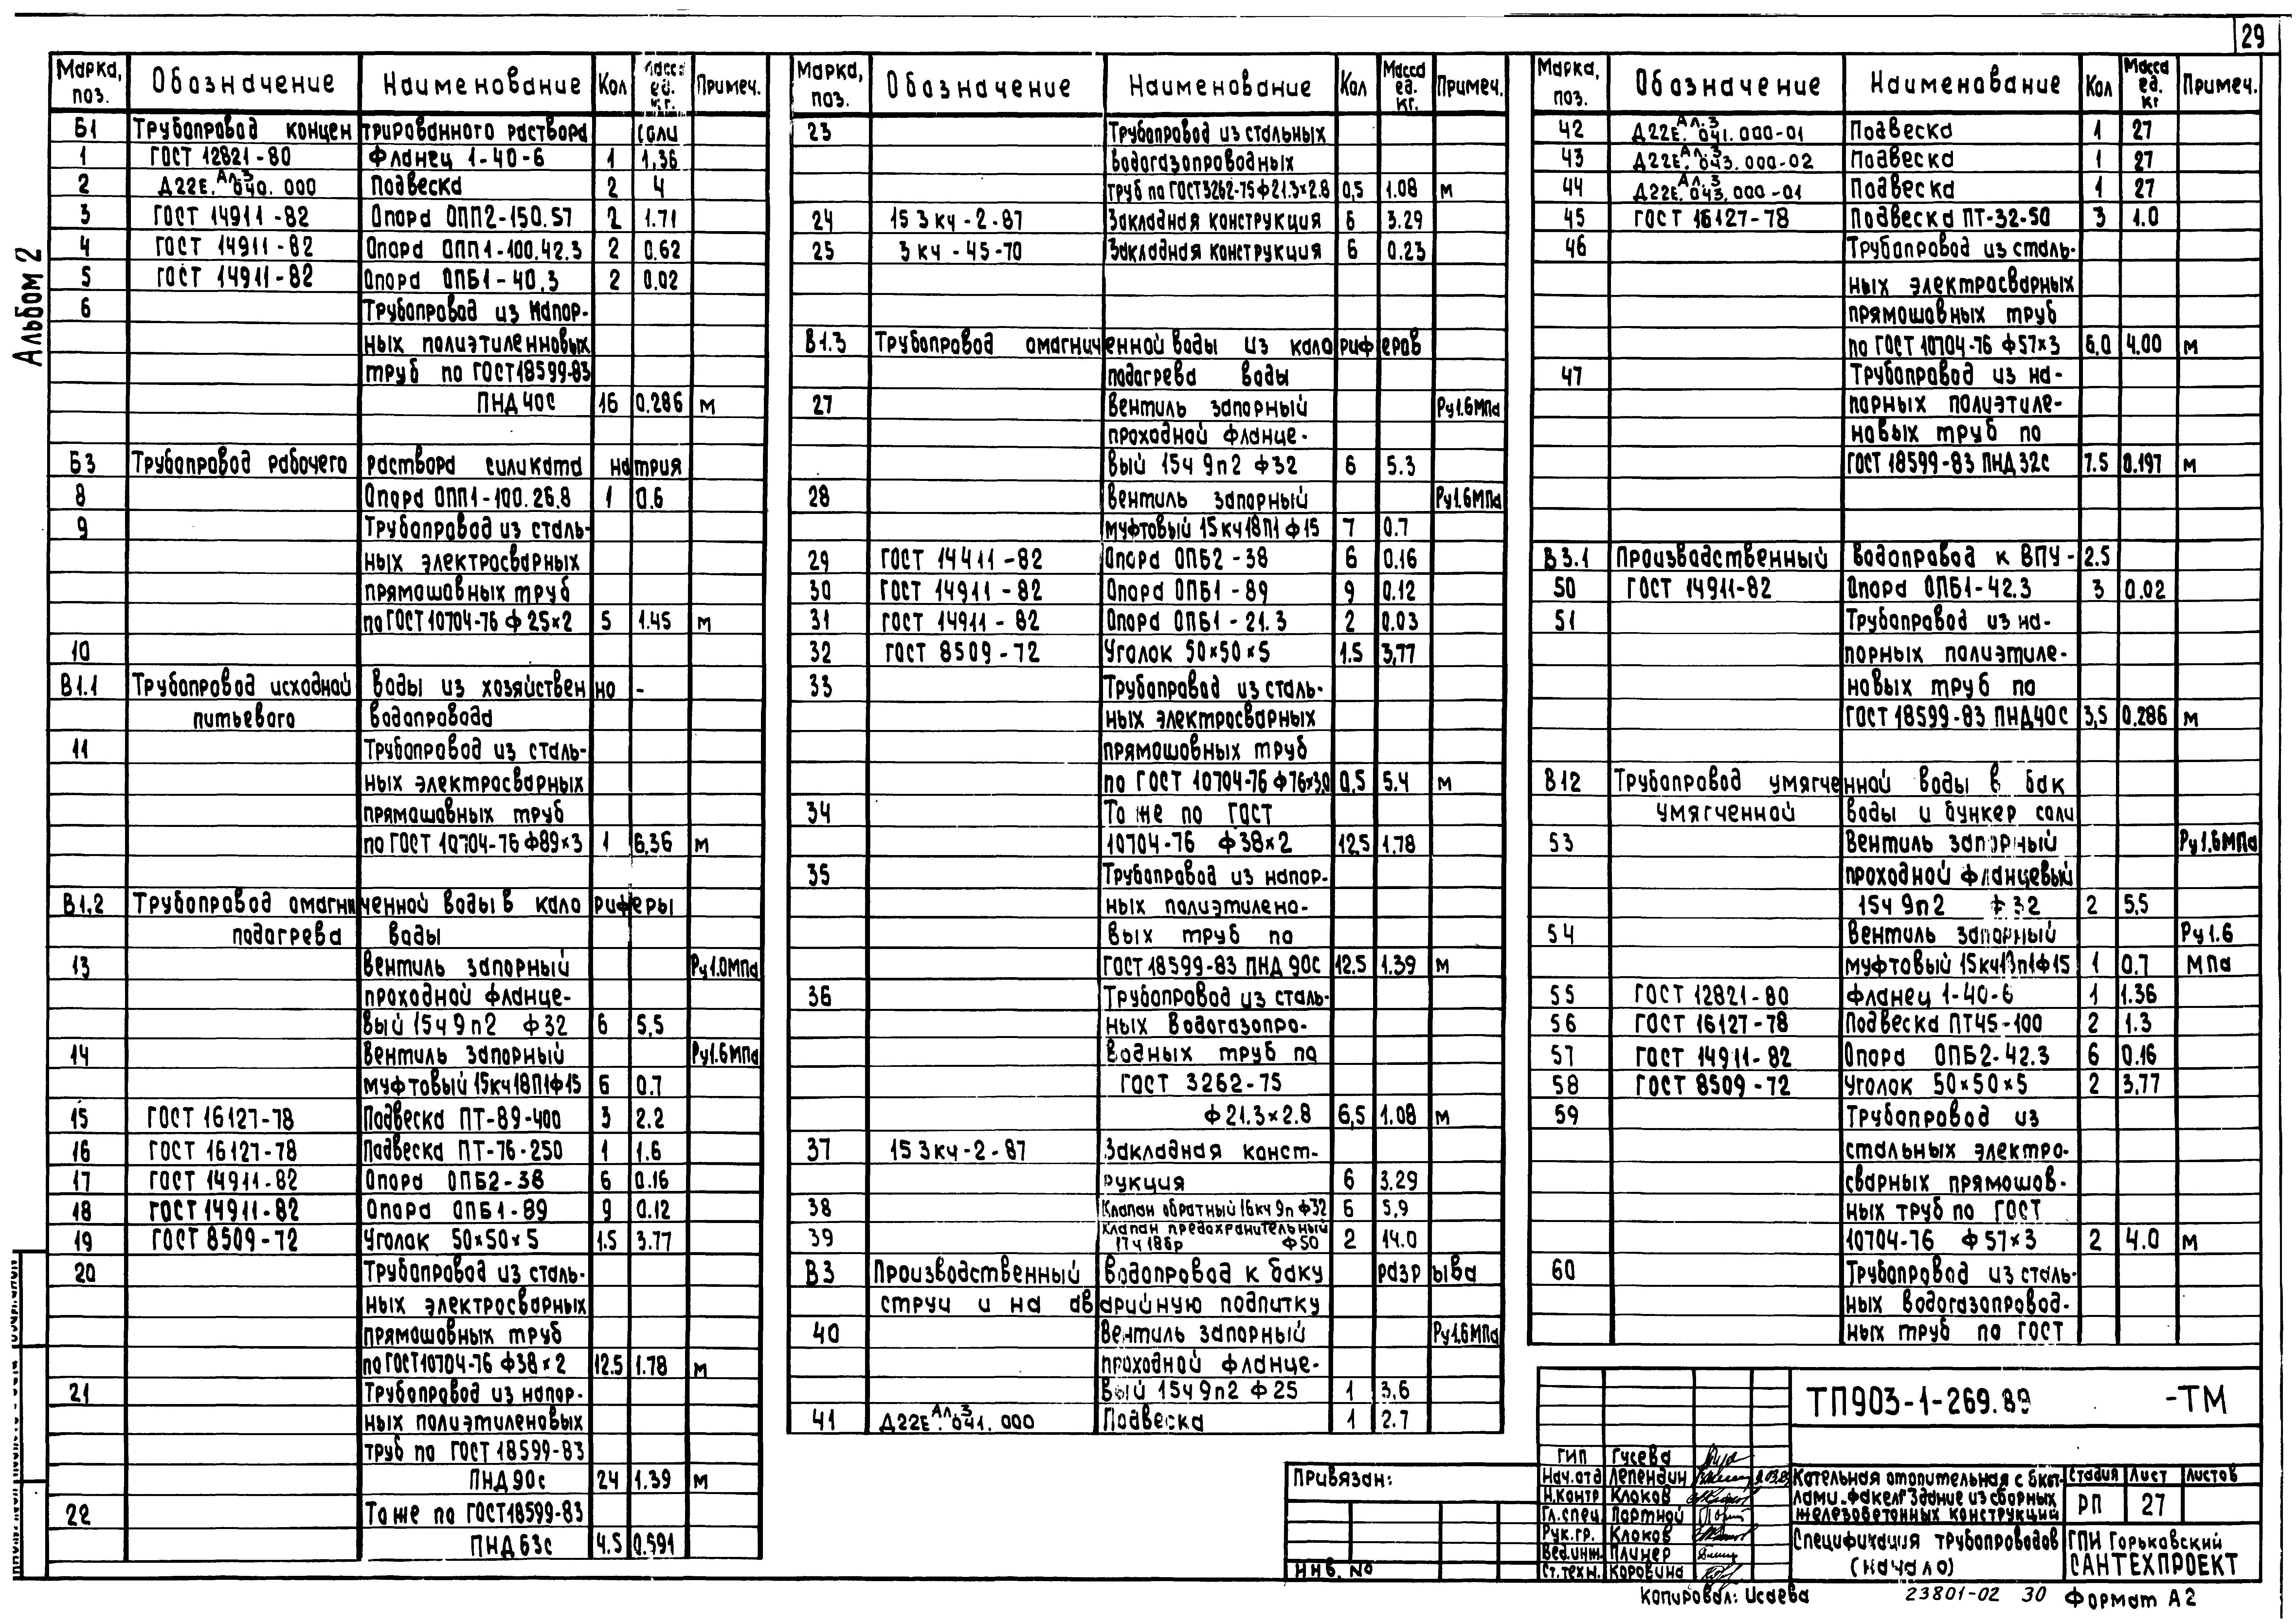 29
Альбом 2
Марка, поз. Обозначение Наименование Кол Масса ед. кг. Примеч.
Б1 Трубопровод концентрированного раствора соли
1 ГОСТ 12821-80 Фланец 1-40-6 1 1,36
2 Д22Е.Ал.3 040.000 Подвеска 2 4
3 ГОСТ 14911-82 Опора ОПП2-150.57 2 1.71
4 ГОСТ 14911-82 Опора ОПП1-100.42.3 2 0.62
5 ГОСТ 14911-82 Опора ОПБ1-40.3 2 0.02
6 Трубопровод из напор-
ных полиэтиленновых
труб по ГОСТ18599-83
ПНД 40С 16 0.286 м
Б3 Трубопровод рабочего раствора силиката натрия
8 Опора ОПП1-100.26.8 1 0.6
9 Трубопровод из сталь-
ных электросварных
прямошовных труб
по ГОСТ 10704-76 ф 25×2 5 1.45 м
10
В1.1 Трубопровод исходной воды из хозяйственно-
питьевого водопровода
11 Трубопровод из сталь-
ных электросварных
прямошовных труб
по ГОСТ 10704-76 ф89×3 1 6,36 м
В1.2 Трубопровод омагниченной воды в калориферы
подогрева воды
13 Вентиль запорный Ру1.0МПа
проходной фланце-
вый 15ч 9п2 ф32 6 5,5
14 Вентиль запорный Ру1.6МПа
муфтовый 15кч18П1ф15 6 0.7
15 ГОСТ 16127-78 Подвеска ПТ-89-400 3 2.2
16 ГОСТ 16127-78 Подвеска ПТ-76-250 1 1.6
17 ГОСТ 14911-82 Опора ОПБ2-38 6 0.16
18 ГОСТ 14911-82 Опора ОПБ1-89 9 0.12
19 ГОСТ 8509-72 Уголок 50×50×5 1.5 3.77
20 Трубопровод из сталь-
ных электросварных
прямошовных труб
по ГОСТ10704-76 ф38×2 12.5 1.78 м
21 Трубопровод из напор-
ных полиэтиленовых
труб по ГОСТ 18599-83
ПНД 90с 24 1.39 м
22 То же по ГОСТ18599-83
ПНД 63с 4.5 0.591
Марка, поз. Обозначение Наименование Кол Масса ед. кг. Примеч.
23 Трубопровод из стальных
водогазопроводных
труб по ГОСТ3262-75ф21.3×2.8 0,5 1.08 м
24 15 3 кч-2-87 Закладная конструкция 6 3.29
25 3 кч-45-70 Закладная конструкция 6 0.23
В1.3 Трубопровод омагниченной воды из калориферов
подогрева воды
27 Вентиль запорный Ру1.6МПа
проходной фланце-
вый 15ч 9п2 ф32 6 5.3
28 Вентиль запорный Ру1.6МПа
муфтовый 15кч18П1 ф15 7 0.7
29 ГОСТ 14411-82 Опора ОПБ2-38 6 0.16
30 ГОСТ 14911-82 Опора ОПБ1-89 9 0.12
31 ГОСТ 14911-82 Опора ОПБ1-21.3 2 0.03
32 ГОСТ 8509-72 Уголок 50×50×5 1.5 3,77
33 Трубопровод из сталь-
ных электросварных
прямошовных труб
по ГОСТ 10704-76 ф76×3,0 0,5 5.4 м
34 То же по ГОСТ
10704-76 ф38×2 12,5 1,78
35 Трубопровод из напор-
ных полиэтилено-
вых труб по
ГОСТ 18599-83 ПНД 90С 12.5 1.39 м
36 Трубопровод из сталь-
ных водогазопро-
водных труб по
ГОСТ 3262-75
ф21.3×2.8 6,5 1.08 м
37 15 3кч-2-87 Закладная конст-
рукция 6 3.29
38 Клапан обратный 16кч 9п ф32 6 5,9
39 Клапан предохранительный
17ч 18бр ф50 2 14.0
В3 Производственный водопровод к баку разрыва
струи и на аварийную подпитку
40 Вентиль запорный Ру1.6МПа
проходной фланце-
вый 15ч 9п2 ф25 1 3,6
41 Д22Е.Ал.3 041.000 Подвеска 1 2.7
Марка, поз. Обозначение Наименование Кол Масса ед. кг Примеч.
42 Д22Е.Ал.3 041.000-01 Подвеска 1 27
43 Д22Е.Ал.3 043.000-02 Подвеска 1 27
44 Д22Е.Ал.3 043.000-01 Подвеска 1 27
45 ГОСТ 16127-78 Подвеска ПТ-32-50 3 1.0
46 Трубопровод из сталь-
ных электросварных
прямошовных труб
по ГОСТ 10704-76 ф57×3 6,0 4.00 м
47 Трубопровод из на-
порных полиэтиле-
новых труб по
ГОСТ 18599-83 ПНД 32С 7.5 0.197 м
В3.1 Производственный водопровод к ВПУ-2.5
50 ГОСТ 14911-82 Опора ОПБ1-42.3 3 0.02
51 Трубопровод из на-
порных полиэтиле-
новых труб по
ГОСТ 18599-83 ПНД40С 3,5 0.286 м
В12 Трубопровод умягченной воды в бак
умягченной воды и бункер соли
53 Вентиль запорный Ру1.6МПа
проходной фланцевый
15ч 9п2 ф32 2 5,5
54 Вентиль запорный Ру1.6
муфтовый 15кч18п1ф15 1 0.7 МПа
55 ГОСТ 12821-80 Фланец 1-40-6 1 1.36
56 ГОСТ 16127-78 Подвеска ПТ45-100 2 1.3
57 ГОСТ 14911-82 Опора ОПБ2-42.3 6 0.16
58 ГОСТ 8509-72 Уголок 50×50×5 2 3,77
59 Трубопровод из
стальных электро-
сварных прямошов-
ных труб по ГОСТ
10704-76 ф57×3 2 4.0 м
60 Трубопровод из сталь-
ных водогазопровод-
ных труб по ГОСТ
Привязан:
Инв. №
ТП903-1-269.89 -ТМ
ГИП Гусева
Нач.отд Лепендин
Н.контр Клоков
Гл.спец. Портной
Рук.гр. Клоков
Вед.инж. Плинер
Ст.техн. Коровина
Котельная отопительная с 6 кот-
лами „Факел" Здание из сборных
железобетонных конструкций
Стадия Лист Листов
РП 27
Спецификация трубопроводов
(начало)
ГПИ Горьковский
САНТЕХПРОЕКТ
Копировал: Исаева 23801-02 30 Формат А2